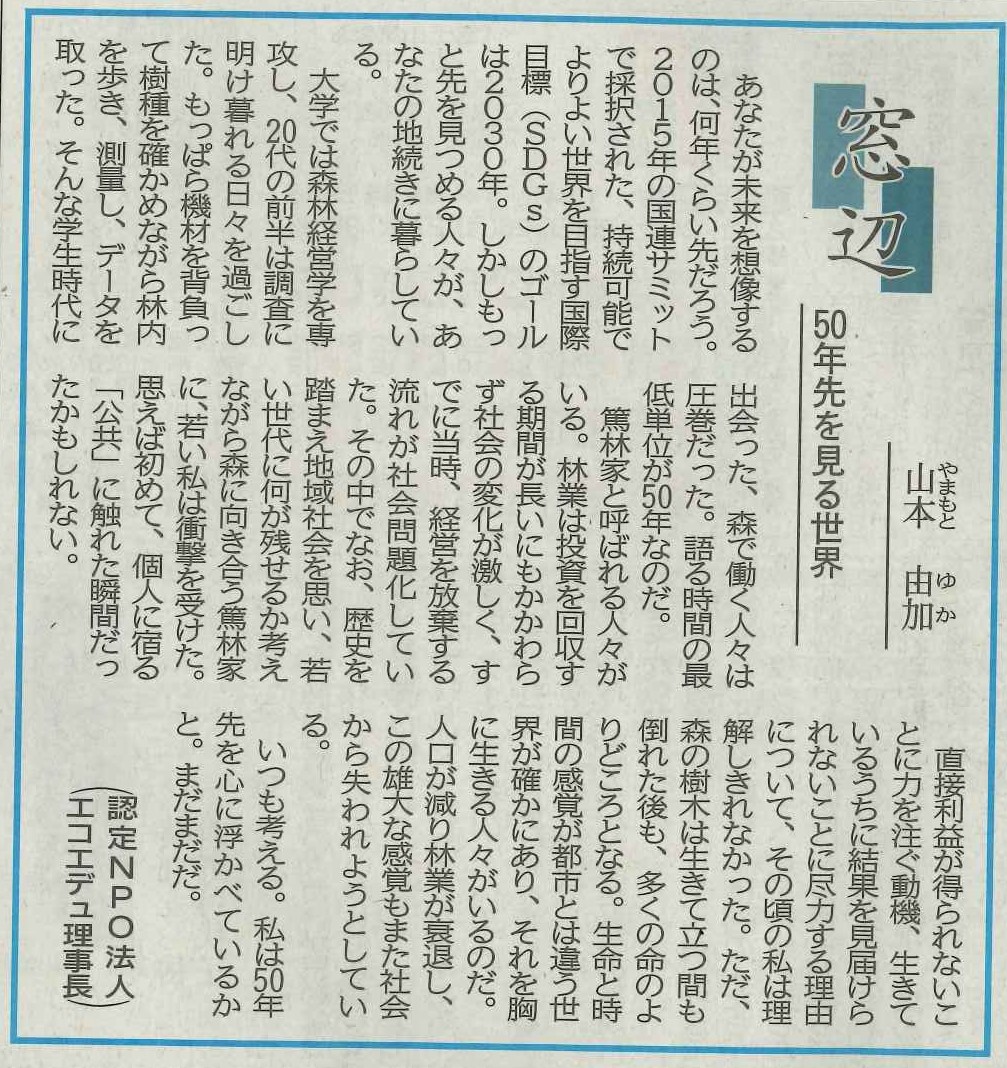 窓辺
50年先を見る世界
やまもと ゆか
山本 由加
あなたが未来を想像する
のは、何年くらい先だろう。
2015年の国連サミット
で採択された、持続可能で
よりよい世界を目指す国際
目標（SDGs）のゴール
は2030年。しかしもっ
と先を見つめる人々が、あ
なたの地続きに暮らしてい
る。
大学では森林経営学を専
攻し、20代の前半は調査に
明け暮れる日々を過ごし
た。もっぱら機材を背負っ
て樹種を確かめながら林内
を歩き、測量し、データを
取った。そんな学生時代に
出会った、森で働く人々は
圧巻だった。語る時間の最
低単位が50年なのだ。
篤林家と呼ばれる人々が
いる。林業は投資を回収す
る期間が長いにもかかわら
ず社会の変化が激しく、す
でに当時、経営を放棄する
流れが社会問題化してい
た。その中でなお、歴史を
踏まえ地域社会を思い、若
い世代に何が残せるか考え
ながら森に向き合う篤林家
に、若い私は衝撃を受けた。
思えば初めて、個人に宿る
「公共」に触れた瞬間だっ
たかもしれない。
直接利益が得られないこ
とに力を注ぐ動機、生きて
いるうちに結果を見届けら
れないことに尽力する理由
について、その頃の私は理
解しきれなかった。ただ、
森の樹木は生きて立つ間も
倒れた後も、多くの命のよ
りどころとなる。生命と時
間の感覚が都市とは違う世
界が確かにあり、それを胸
に生きる人々がいるのだ。
人口が減り林業が衰退し、
この雄大な感覚もまた社会
から失われようとしてい
る。
いつも考える。私は50年
先を心に浮かべているか
と。まだまだだ。
（認定NPO法人
エコエデュ理事長）